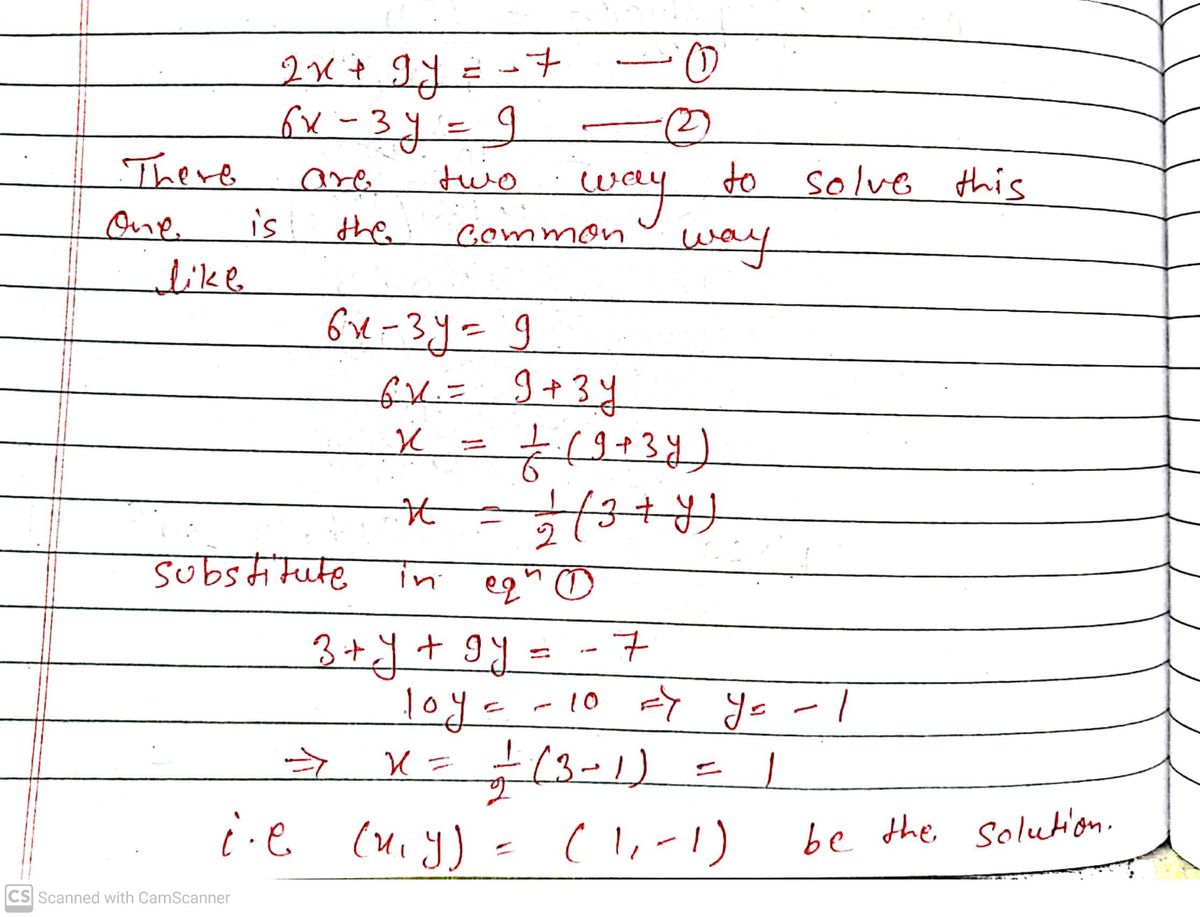 2x + 9y = -7 — ①
6x - 3y = 9 — ②
There are two way to solve this
One is the common way
like
6x - 3y = 9
6x = 9 + 3y
x = 1/6 (9 + 3y)
x = 1/2 (3 + y)
substitute in eqⁿ ①
3 + y + 9y = -7
10y = -10 => y = -1
=> x = 1/2 (3 - 1) = 1
i.e (x, y) = (1, -1) be the solution.
CS Scanned with CamScanner